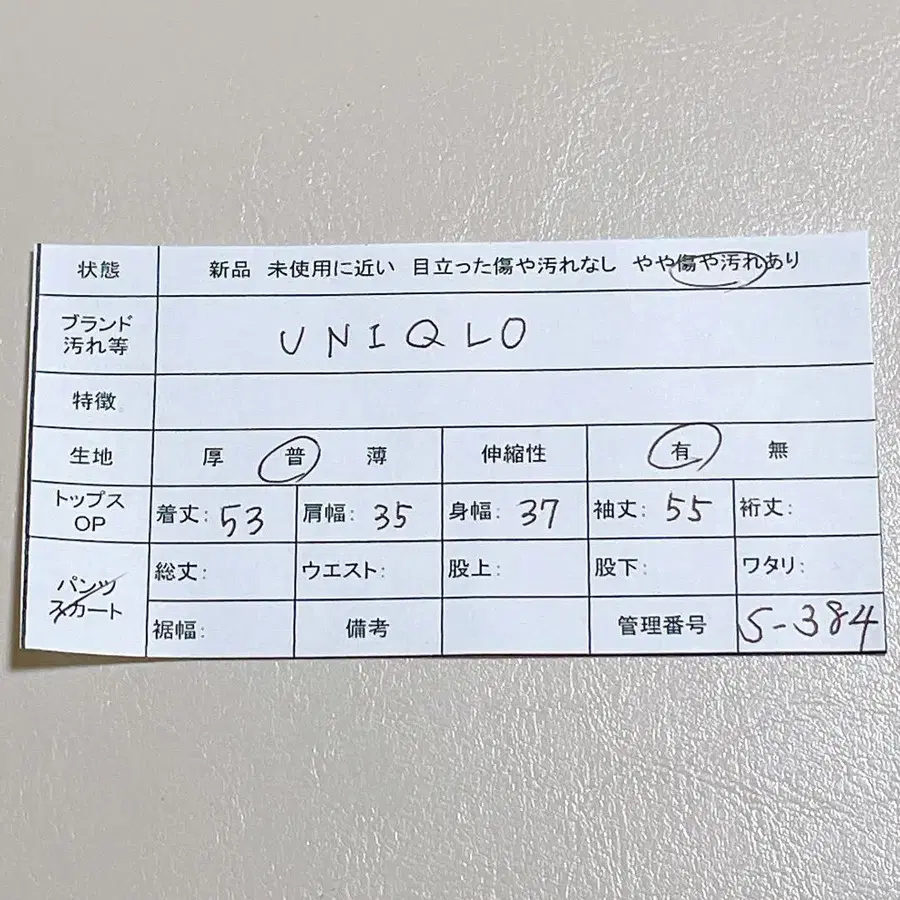 状態 新品 未使用に近い 目立った傷や汚れなし やや傷や汚れあり
ブランド
汚れ等 UNIQLO
特徴
生地 厚 普 薄 伸縮性 有 無
トップス
OP 着丈: 53 肩幅: 35 身幅: 37 袖丈: 55 裄丈:
パンツ
スカート 総丈: ウエスト: 股上: 股下: ワタリ:
裾幅: 備考 管理番号 S-384